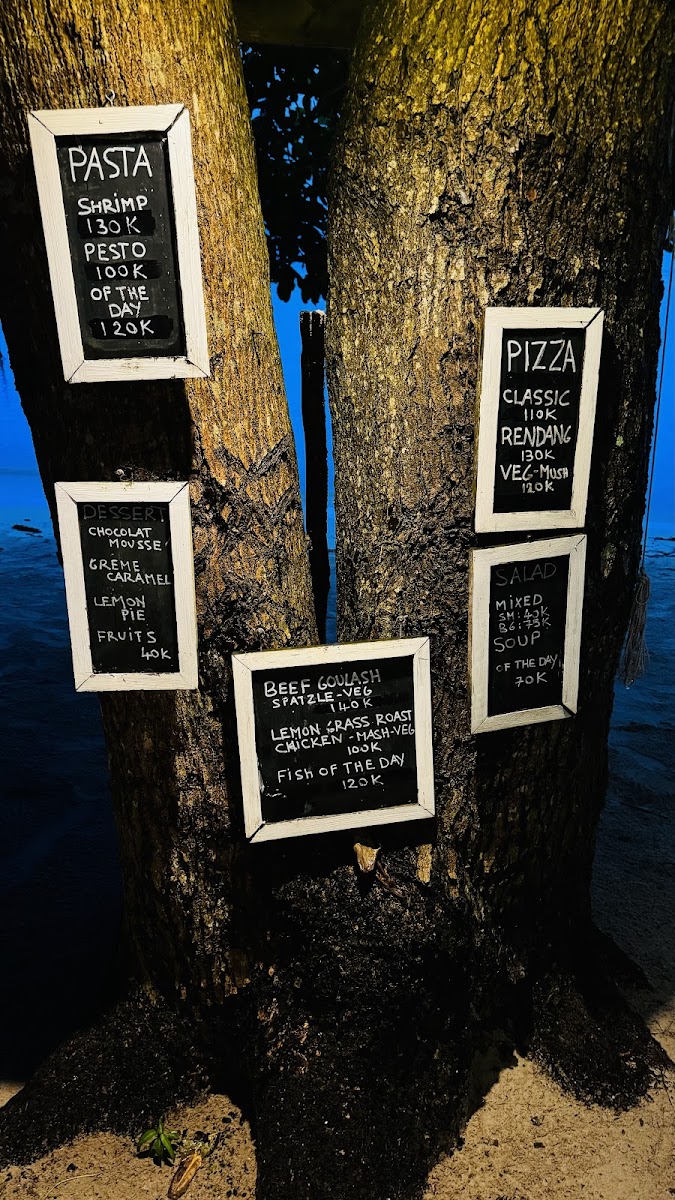 PASTA
SHRIMP
130K
PESTO
100K
OF THE
DAY
120K
PIZZA
CLASSIC
110K
RENDANG
130K
VEG-MUSH
120K
DESSERT
CHOCOLAT
MOUSSE
CREME
CARAMEL
LEMON
PIE
FRUITS
40K
SALAD
MIXED
SM: 40K
BG: 75K
SOUP
OF THE DAY
70K
BEEF GOULASH
SPATZLE-VEG
140K
LEMON GRASS ROAST
CHICKEN - MASH-VEG
100K
FISH OF THE DAY
120K